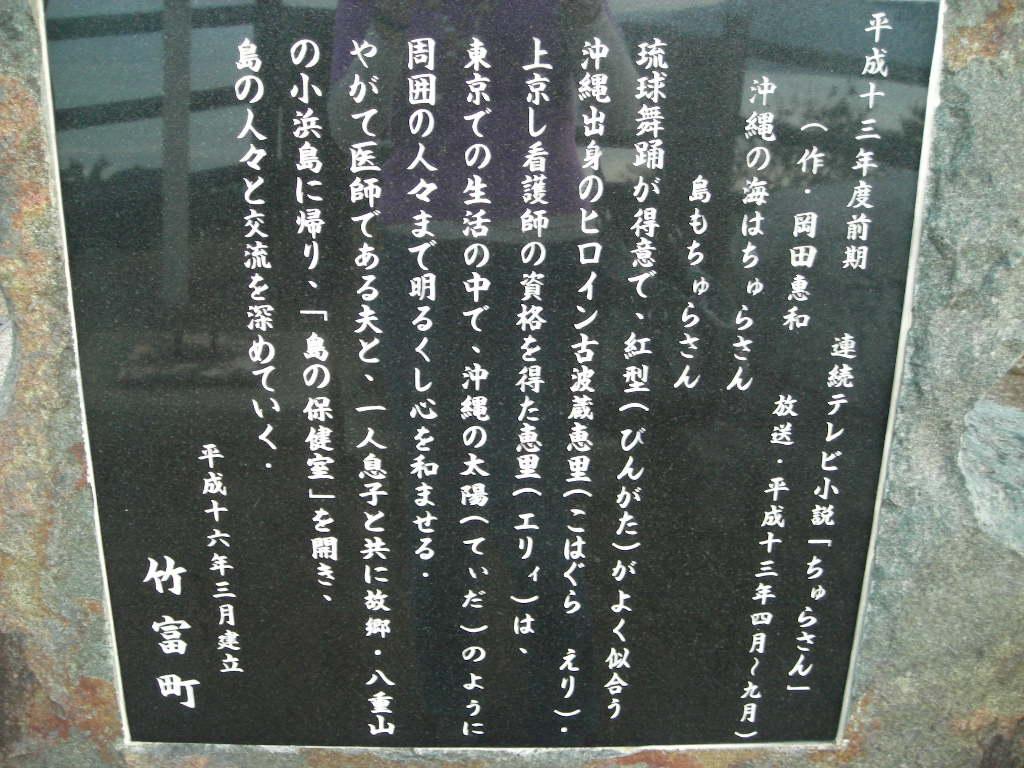 平成十三年度前期　連続テレビ小説「ちゅらさん」
（作・岡田惠和　放送・平成十三年四月〜九月）
沖縄の海はちゅらさん
島もちゅらさん
琉球舞踊が得意で、紅型（びんがた）がよく似合う
沖縄出身のヒロイン古波蔵恵里（こはぐら　えり）．
上京し看護師の資格を得た恵里（エリィ）は、
東京での生活の中で、沖縄の太陽（てぃだ）のように
周囲の人々まで明るくし心を和ませる．
やがて医師である夫と、一人息子と共に故郷・八重山
の小浜島に帰り、「島の保健室」を開き、
島の人々と交流を深めていく．
平成十六年三月建立
竹富町